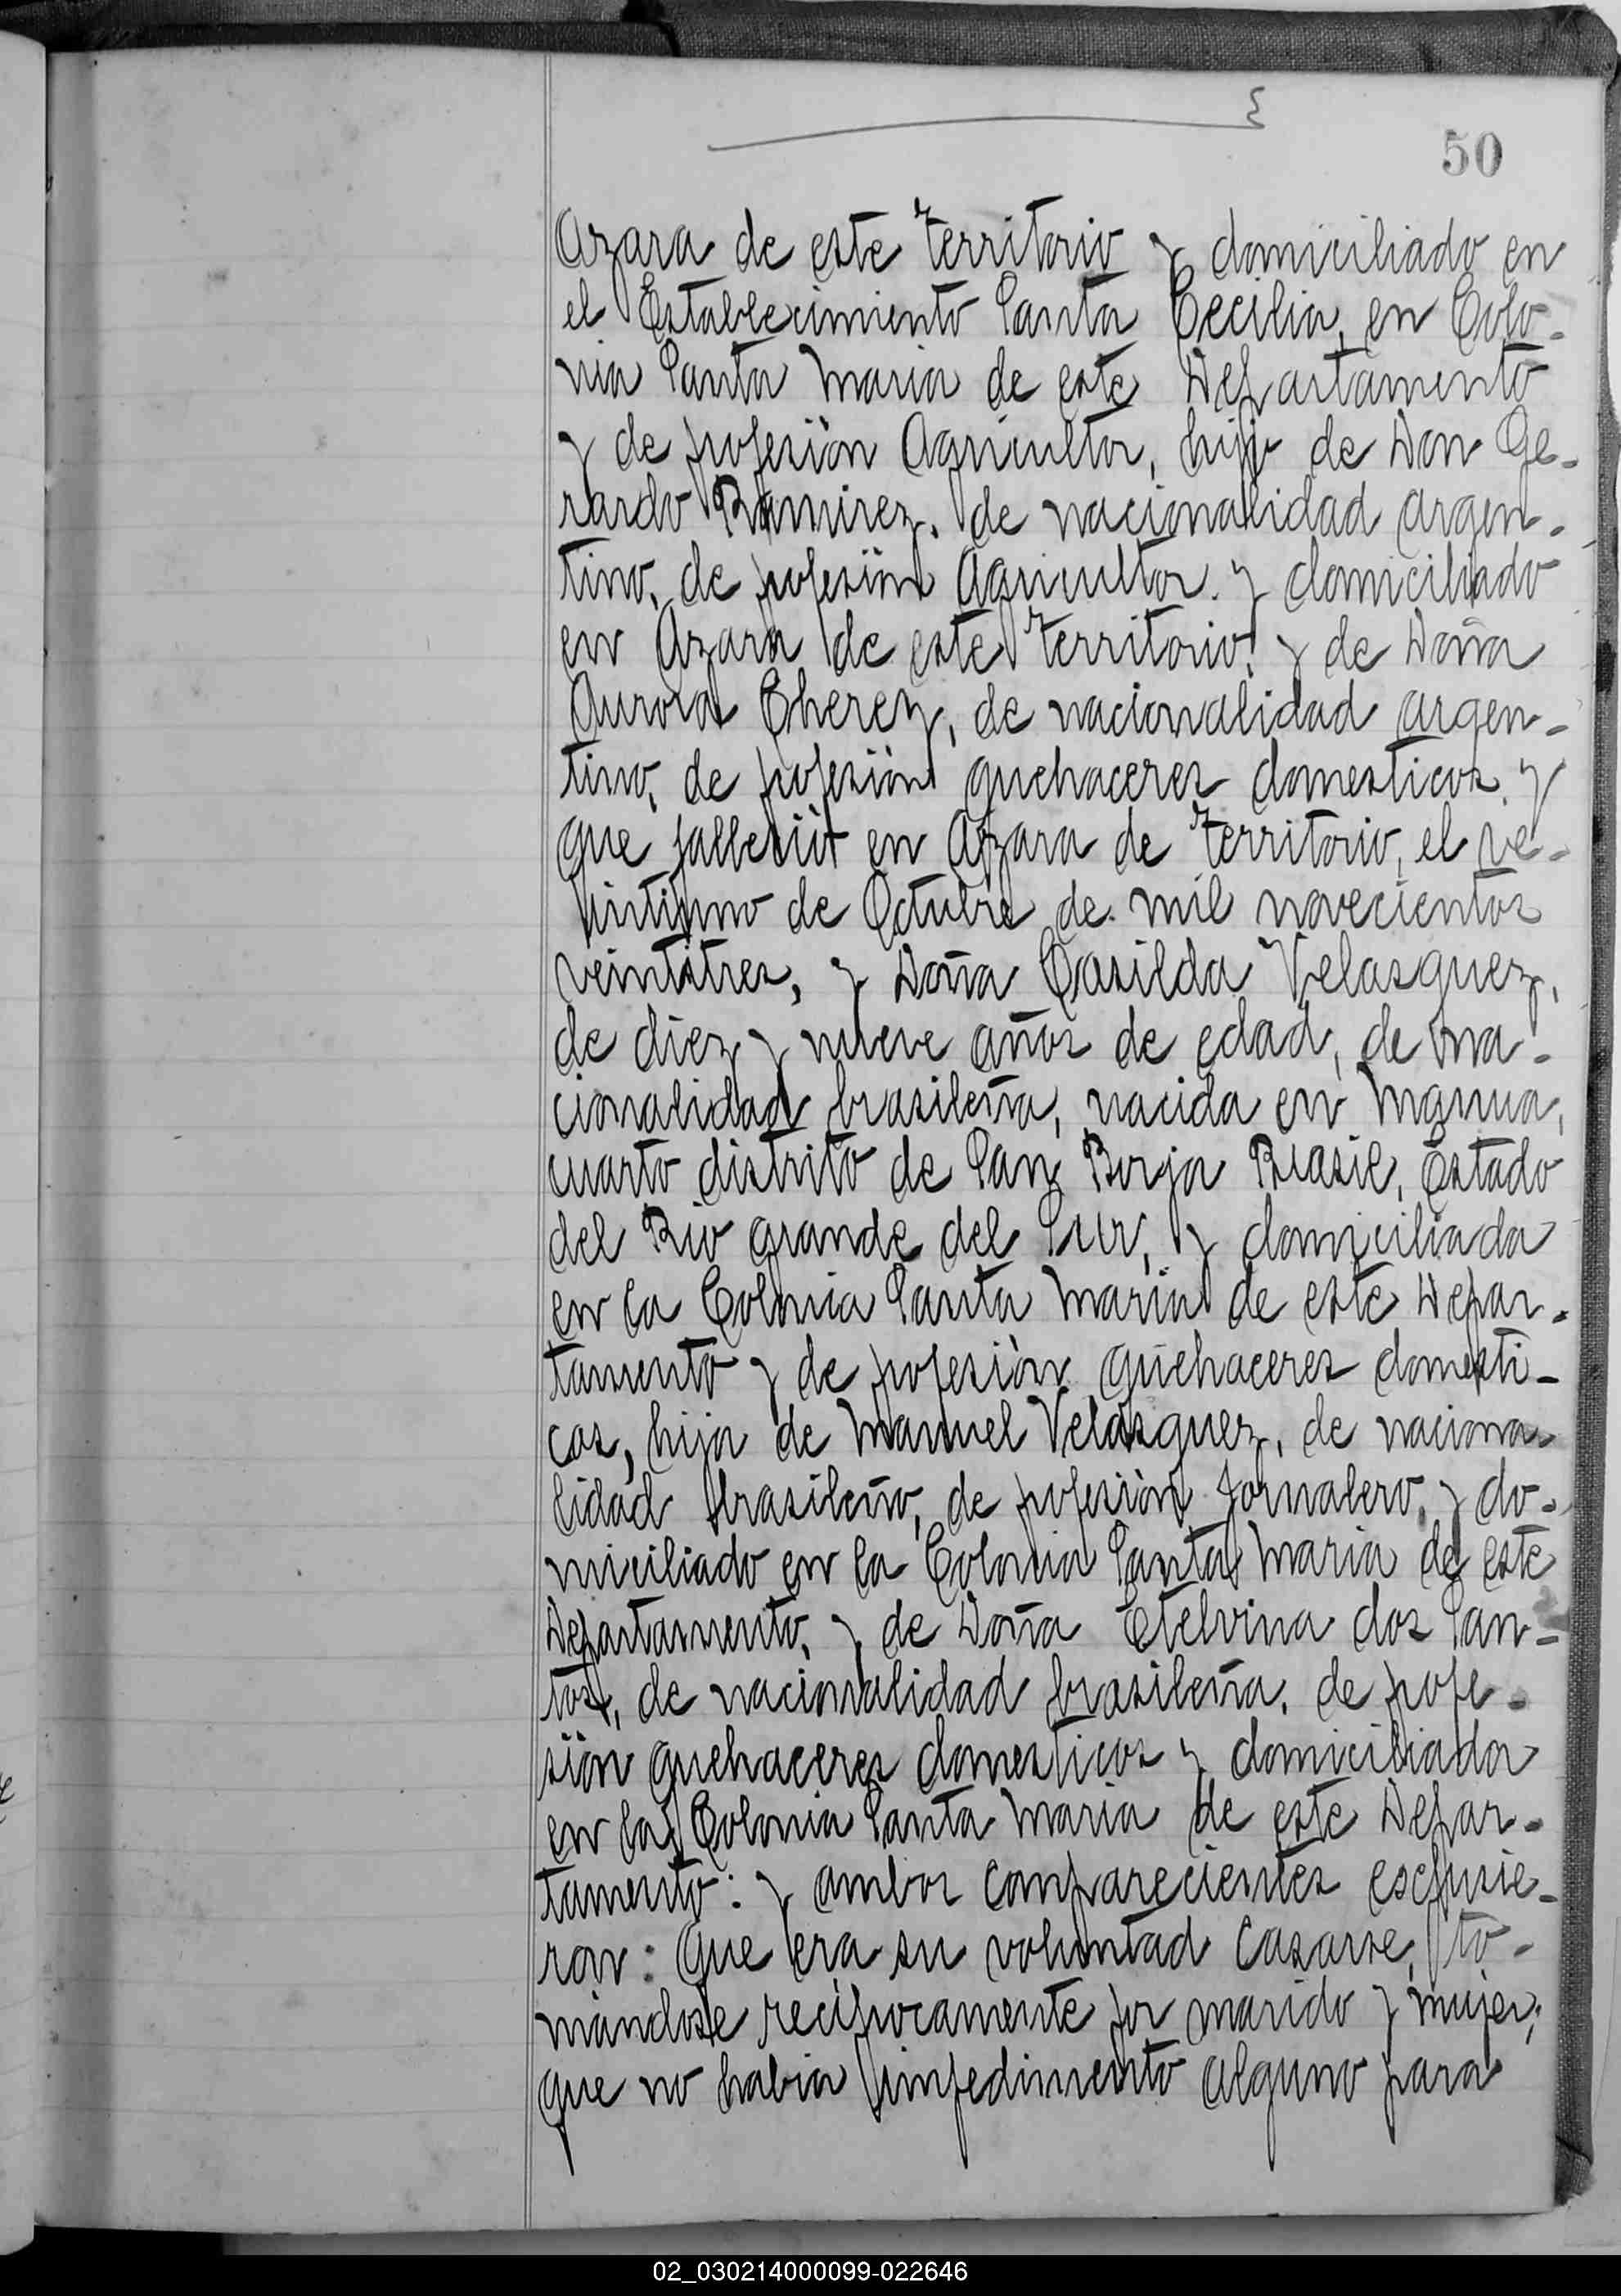 50
Azara de este Territorio y domiciliado en
el Establecimiento Santa Cecilia, en Colo-
nia Santa Maria de este Departamento
y de profesión Agricultor, hijo de Don Ge-
rardo Ramirez, de nacionalidad argen-
tino, de profesión Agricultor. y domiciliado
en Azara de este Territorio, y de Doña
Aurora Cherez, de nacionalidad argen-
tino, de profesión quehaceres domesticos. y
que falleció en Azara de Territorio, el ve-
intiuno de Octubre de mil novecientos
veintitres, y Doña Casilda Velasquez,
de diez y nueve años de edad, de na-
cionalidad brasileña, nacida en
cuarto distrito de San Borja Brasil, Estado
del Rio grande del Sur, y domiciliada
en la Colonia Santa Maria de este Depar-
tamento y de profesión quehaceres domesti-
cos, hija de Manuel Velasquez, de naciona-
lidad brasileño, de profesión Jornalero, y do-
miciliado en la Colonia Santa Maria de este
Departamento, y de Doña Etelvina dos San-
tos, de nacionalidad brasileña, de profe-
sión quehaceres domesticos y domiciliada
en la Colonia Santa Maria de este Depar-
tamento: y ambos comparecientes espusie-
ron: Que era su voluntad casarse, to-
mándose reciprocamente por marido y mujer;
que no habia impedimento alguno para
02_030214000099-022646